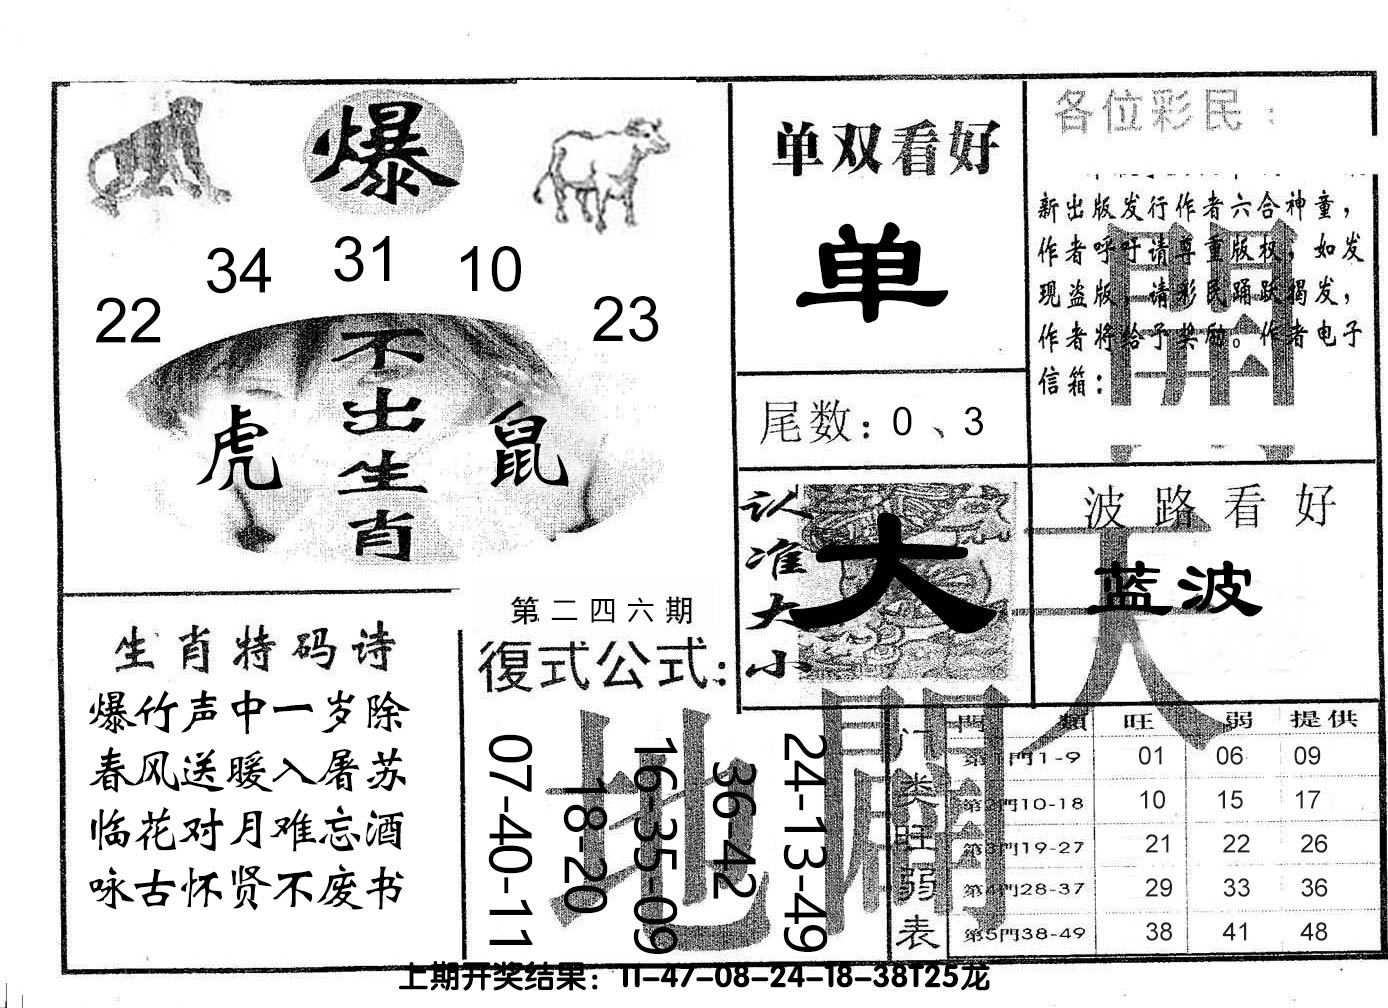 爆
34 31 10
22 23
不出生肖
虎 鼠
单双看好
单
尾数：0、3
各位彩民：
新出版发行作者六合神童，
作者呼吁请尊重版权，如发
现盗版，请彩民踊跃揭发，
作者将给予奖励。作者电子
信箱：
開
认准大小
大
波路看好
蓝波
天
生肖特码诗
爆竹声中一岁除
春风送暖入屠苏
临花对月难忘酒
咏古怀贤不废书
第二四六期
復式公式：
07-40-11
18-20
16-35-09
36-42
24-13-49
地
門类旺弱表
門類 旺 弱 提供
第1門1-9 01 06 09
第2門10-18 10 15 17
第3門19-27 21 22 26
第4門28-37 29 33 36
第5門38-49 38 41 48
上期开奖结果：11-47-08-24-18-38T25龙